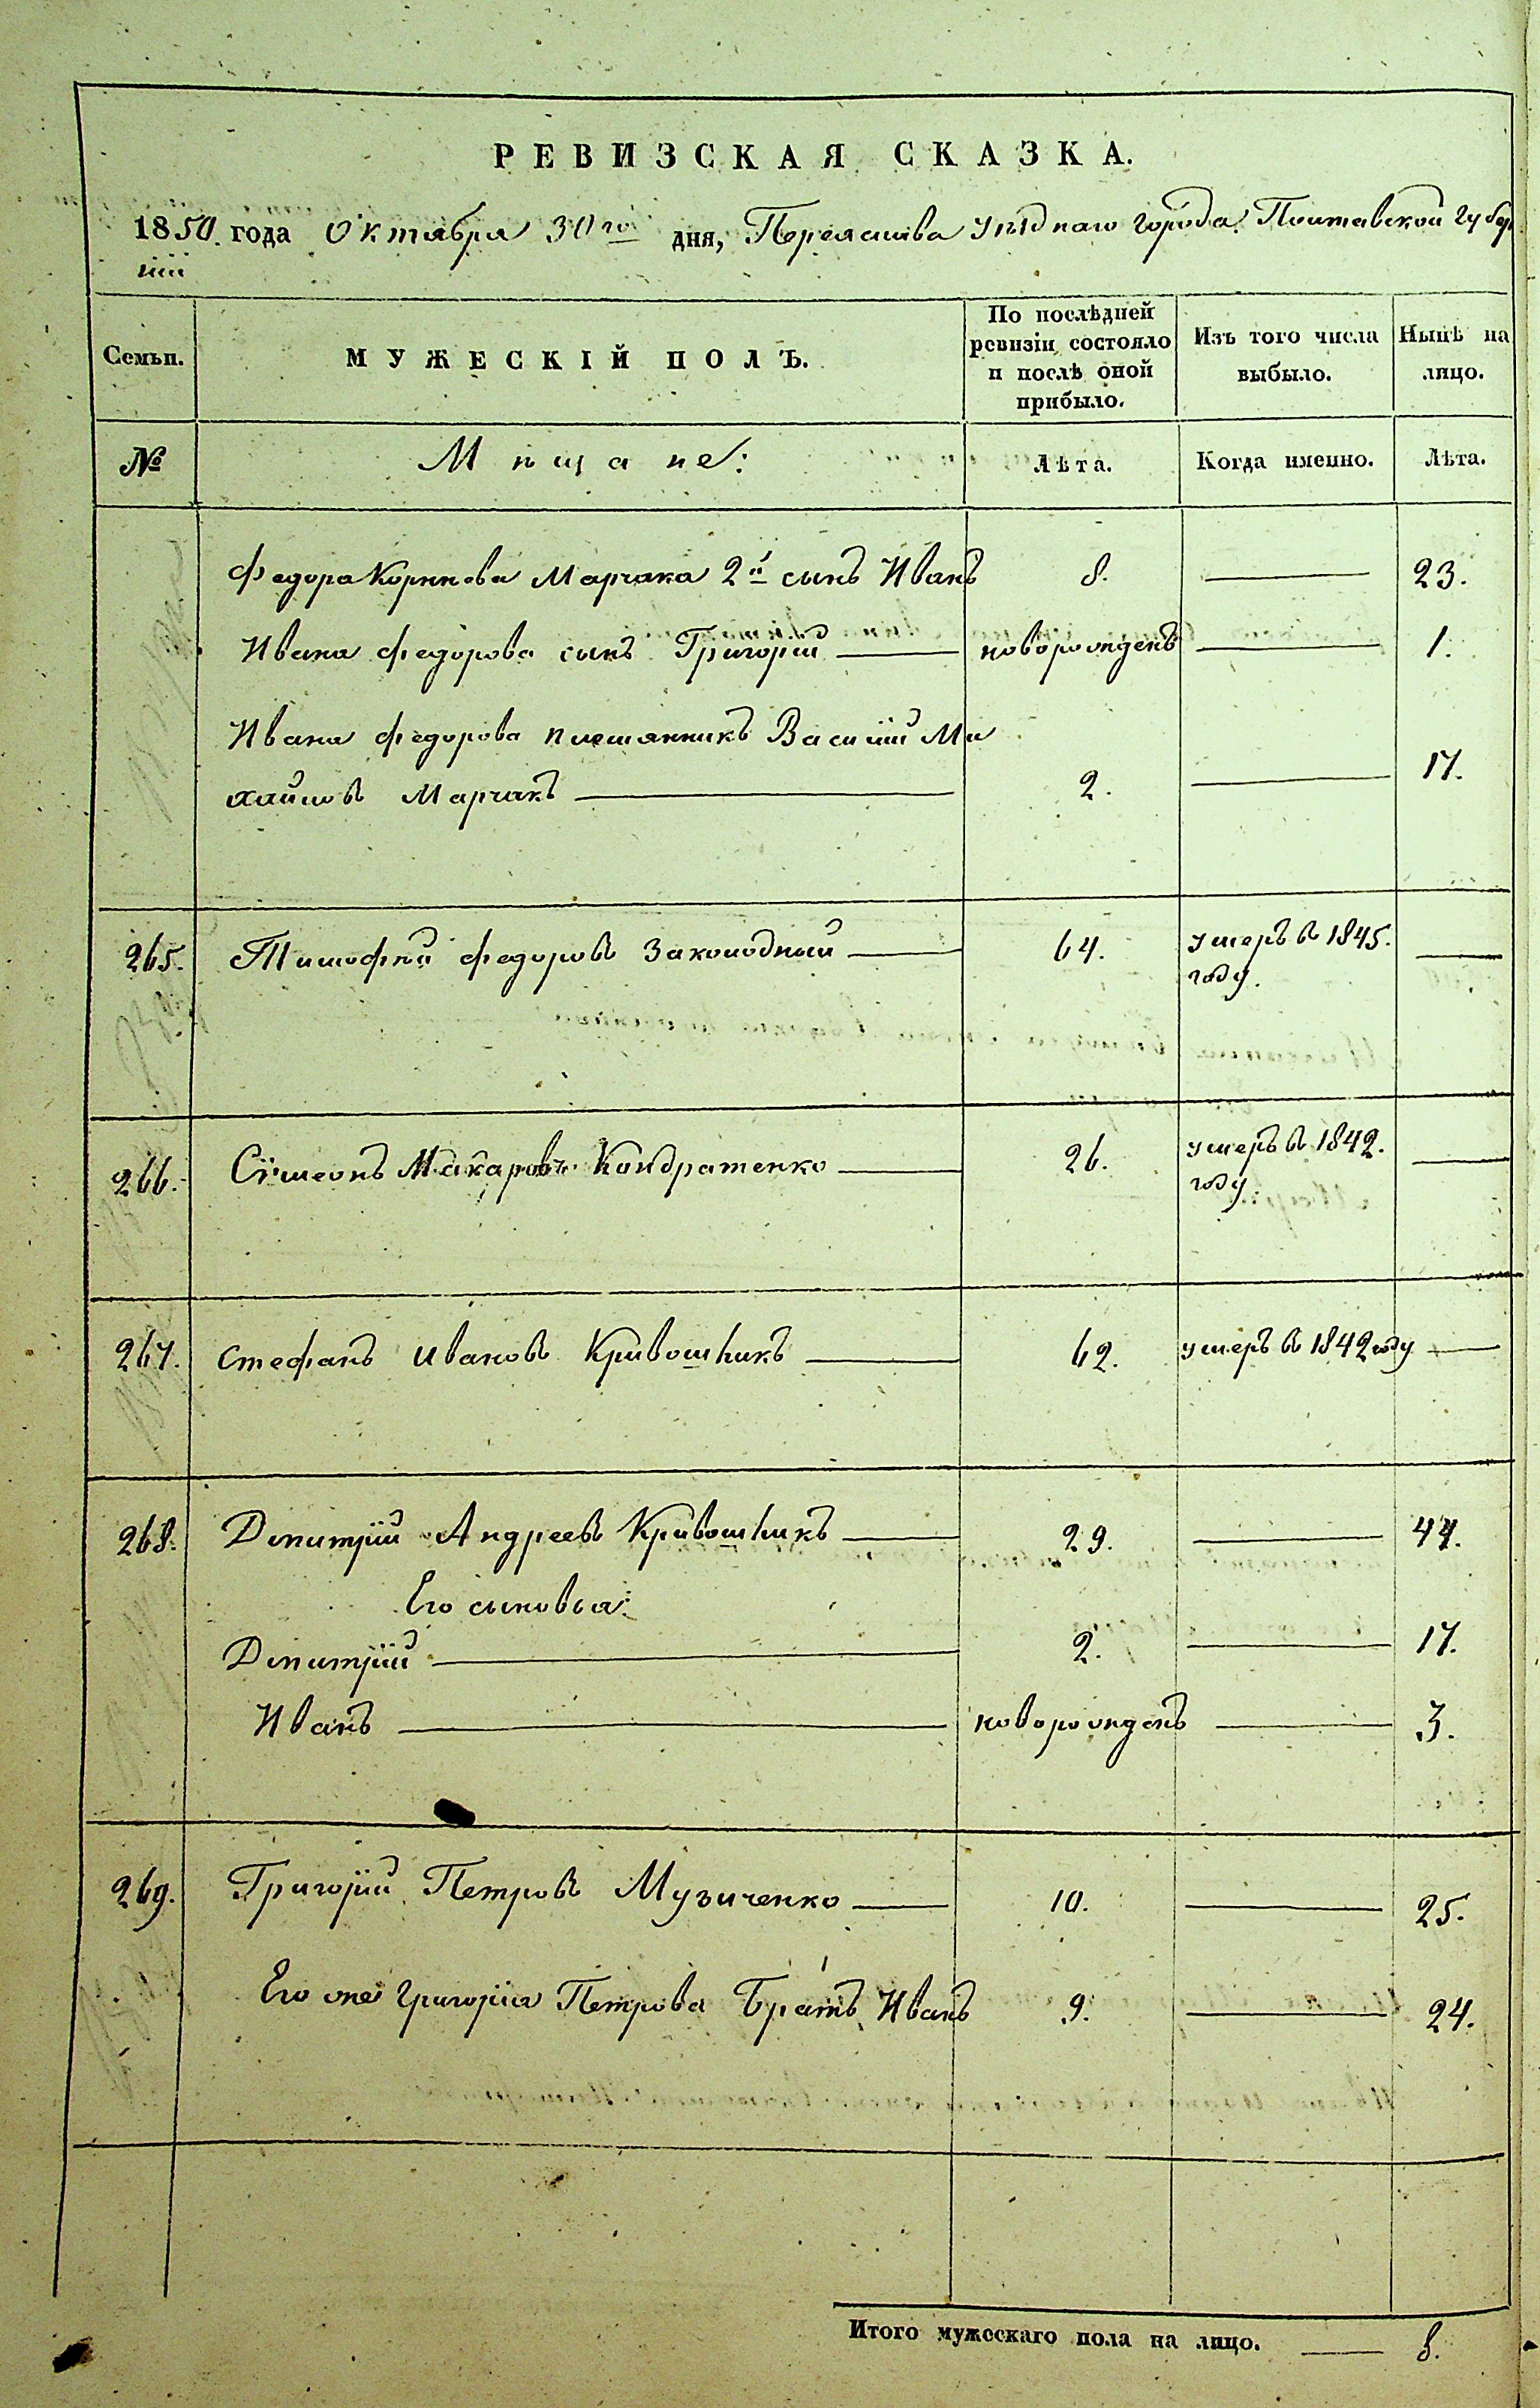 РЕВИЗСКАЯ СКАЗКА.
1850. года Октября 30го дня, Переяслава уѣзднаго города Полтавской Губер
нїи
Семьи.
МУЖЕСКІЙ ПОЛЪ.
По послѣдней
ревизіи состояло
и послѣ оной
прибыло.
Изъ того числа
выбыло.
Нынѣ на
лицо.
№
Мѣщане:
Лѣта.
Когда именно.
Лѣта.
Федора Корнѣева Марчака 2й сынъ Иванъ 8. 23.
Ивана Федорова сынъ Григорій новорожденъ 1.
Ивана Федорова племянникъ Василій Ми
хайловъ Марчакъ 2. 17.
265. Тимофѣй Федоровъ Законодный 64. умеръ в 1845.
году.
266. Сѵмеонъ Макаровъ Кондратенко 26. умеръ в 1842.
году
267. Стефанъ Ивановъ Кривошликъ 62. умеръ в 1842 году
268. Дмитрій Андреевъ Кривошликъ 29. 44.
Его сыновья:
Дмитрій 2. 17.
Иванъ новорожденъ 3.
269. Григорій Петровъ Музиченко 10. 25.
Его же Григорія Петрова Братъ Иванъ 9. 24.
Итого мужескаго пола на лицо. 8.